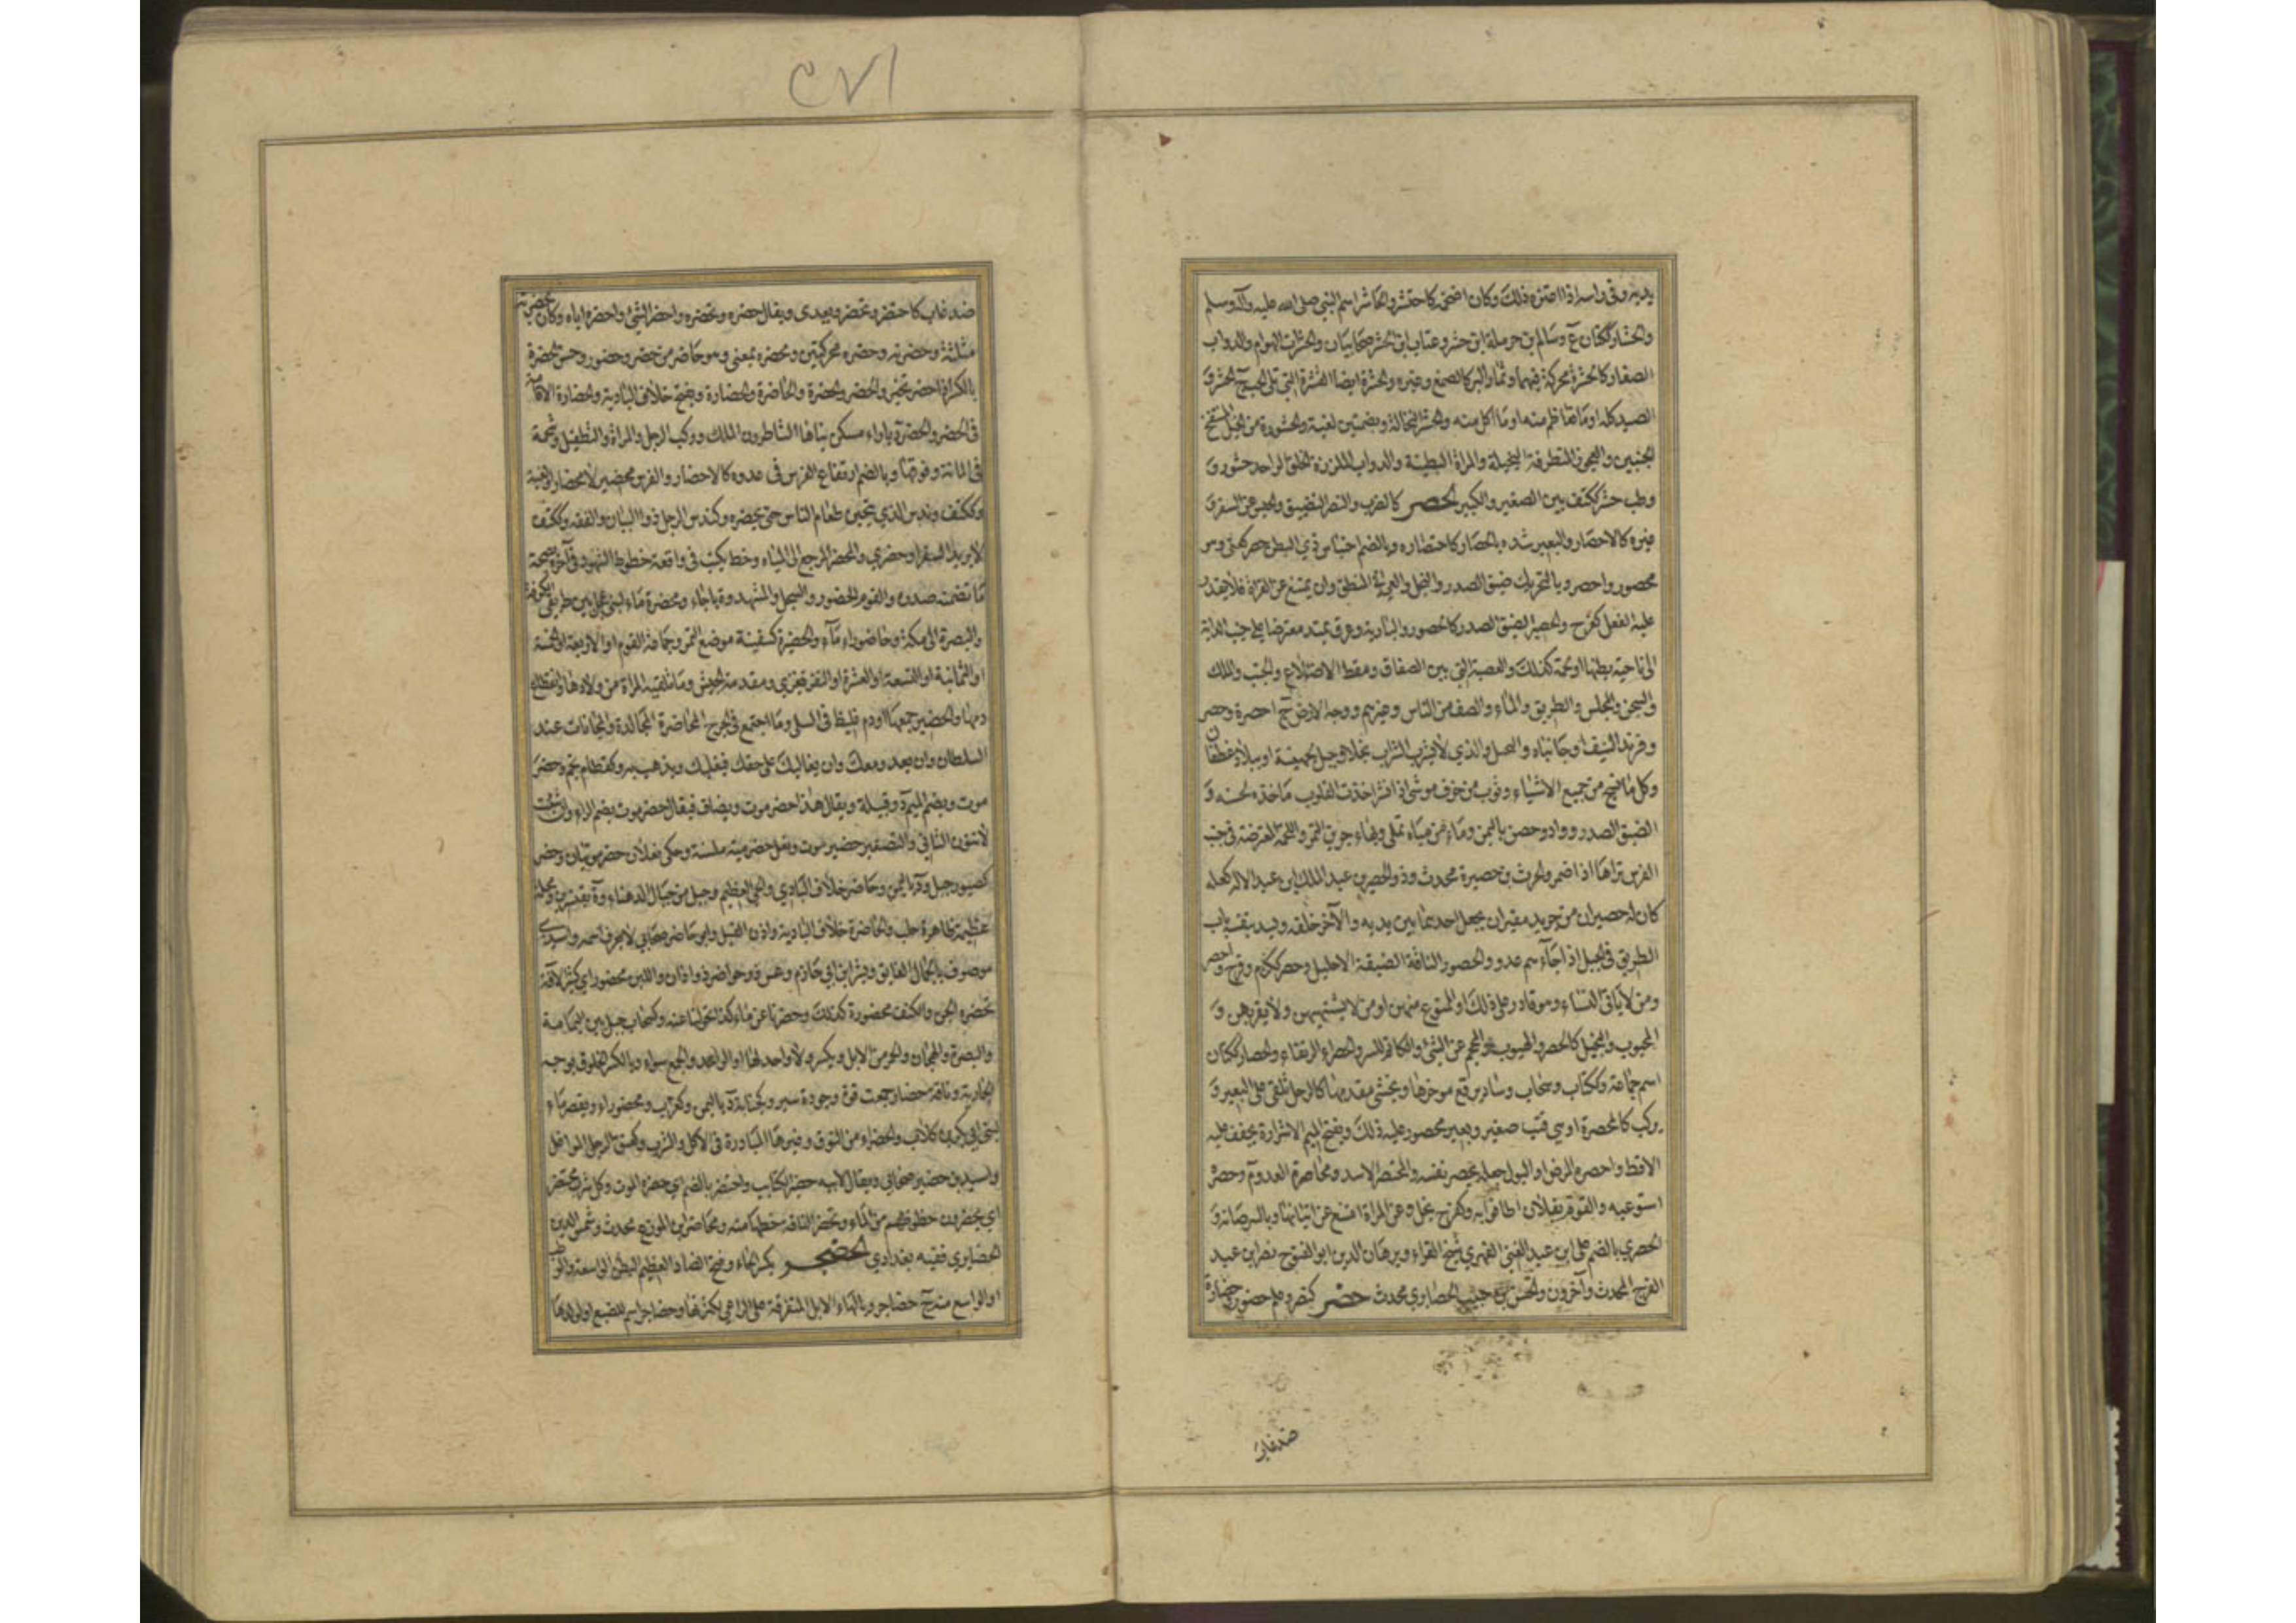 وفي راسه اذا اعتزه ذلك وكان اضخمه كاحتشر والحاشر اسم للنبي صلى الله عليه وآله وسلم
والحشار ككتان ع وسالم بن حرملة بن حشر وعتاب بن ابي الحشر صحابيان والحشرات الهوام والدواب
الصغار كالحشرة محركة فيهما وثمار البر كالصمغ وغيره والحشرة ايضا القشرة التي تلي الحب ج الحشر و
الصيد كله او ما تعاظم منه او ما اكل منه والحشر النخالة وبضمتين لغية والحشورة من الخيل المنتفخ
الجنبين والعجوز المتظرفة البخيلة والمراة البطينة والدواب الملززة الخلق الواحد حشور و
وطب حشر ككتف بين الصغير والكبير الحصر كالضرب والنصر التضييق والحبس عن السفر و
غيره كالاحصار وللبعير شده بالحصار كاحتصاره وبالضم احتباس ذي البطن حصر كعني وهو
محصور واحصر وبالتحريك ضيق الصدر والبخل والعي في المنطق وان يمتنع عن القراة فلا يقدر
عليه الفعل كفرح والحصير الضيق الصدر كالحصور والبارية وعرق يمتد معترضا على جنب الدابة
الى ناحية بطنها او لحمة كذلك والعصبة التي بين الصفاق ومقط الاضلاع والجنب والملك
والسجن والمجلس والطريق والماء والصف من الناس وغيرهم ووجه الارض ج احصرة وحصر
وفرند السيف او جانباه والبخيل والذي لا يشرب الشراب بخلا وجبل لجهينة او ببلاد غطفان
وكل ما نسج من جميع الاشياء وثوب مزخرف موشى اذا نشر اخذت القلوب مآخذه لحسنه و
الضيق الصدر وواد وحصن باليمن وماء من مياه نملى وبهاء جرين التمر واللحمة المعترضة في جنب
الفرس تراها اذا ضمر والحرث بن حصيرة محدث وذو الحصيرين عبد الملك بن عبد الاله كعلة
كان له حصيران من جريد مقيران يجعل احدهما بين يديه والآخر خلفه ويسد بنفسه باب
الطريق في الجبل اذا جآءهم عدو والحصور الناقة الضيقة الاحليل وحصر ككرم وفرح واحصر
ومن لا ياتي النساء وهو قادر على ذلك او الممنوع منهن او من لا يشتهيهن ولا يقربهن و
المجبوب والبخيل كالحصر والهيوب المحجم عن الشئ والكاتم للسر والحصراء الرتقاء والحصار ككتان
اسم جماعة وككتاب وسحاب وساد يرفع موخرها ويحشى مقدمها كالرحل يلقى على البعير و
يركب كالمحصرة او هي قتب صغير وبعير محصور عليه ذلك وبفتح الميم الاشرارة يجفف عليه
الاقط واحصره المرض او البول جعله يحصر نفسه والمحتصر الاسد ومحاصرة العدو م وحصره
استوعبه والقوم بفلان اطافوا به وكفرح بخل وعن المراة امتنع عن اتيانها وبالسر صانه و
الحصري بالضم علي بن عبد الغني الفهري شيخ القراء وبرهان الدين ابو الفتوح نصر بن عبد
الفرج المحدث وآخرون والحسن بن حبيب الحصاري محدث حضر كنصر وعلم حضورا وحضارة
ضد غاب
ضد غاب كاحتضر وتحضر ويعدى ويقال حضره وتحضره واحضر الشئ واحضره اياه وكان بحضرته
مثلثة وحضره وحضرته محركتين ومحضره بمعنى وهو حاضر من حضر وحضور وحسن الحضرة
بالكسر اذا حضر بخير والحضر والحضرة والحاضرة والحضارة ويفتح خلاف البادية والحضارة الاقامة
في الحضر والحضر د بازاء مسكن بناه الساطرون الملك وركب الرجل والمراة والتطفيل وشحمة
في المانة وفوقها وبالضم ارتفاع الفرس في عدوه كالاحضار والفرس محضير لا محضار او لغية
وككتف وندس الذي يتحين طعام الناس حتى يحضره وكندس الرجل ذو البيان والفقه وككتف
لا يريد السفر او حضري والمحضر المرجع الى المياه وخط يكتب في واقعة خطوط الشهود في آخره بصحة
ما تضمنه صدره والقوم الحضور والسجل والمشهد وة باجاء ومحضرة ماء لبني عجل بين طريقي الكوفة
والبصرة الى مكة وحاضوراء مآء والحضيرة كسفينة موضع التمر وجماعة القوم او الاربعة او الخمسة
او الثمانية او التسعة او العشرة او النفر يغزى بهم ومقدمة الجيش وما تلقيه المراة من ولادها وانقطاع
دمها والحضير جمعها او دم غليظ في السلى وما اجتمع في الجرح والمحاضرة المجالدة والمجاثاة عند
السلطان وان يعدو معك وان يغالبك على حقك فيغلبك ويذهب به وكقطام نجم وحضر
موت ويضم الميم د وقبيلة ويقال هذا حضر موت ويضاف فيقال حضر موت بضم الراء وان شئت
لا تنون الثاني والتصغير حضير موت ونعل حضرمية ملسنة وحكي نعلان حضرموتيان وحضور
كصبور جبل ود باليمن وحاضر خلاف البادي والحي العظيم وجبل من جبال الدهناء وة بقنسرين ومحلة
عظيمة بظاهرة حلب والحاضرة خلاف البادية واذن الفيل وابو حاضر صحابي لا يعرف اسمه واسيدي
موصوف بالجمال الفايق وبشر بن ابي حازم وعس ذو حواضر ذو اذان واللبن محضور اي كثير الآفة
تحضره الجن والكنف محضورة كذلك وحضرنا عن ماء كذا تحولنا عنه وكسحاب جبل بين اليمامة
والبصرة والهجان او الحمر من الابل ويكسر ولا واحد لها او الواحد والجمع سواء وبالكسر الخلوق بوجه
الجارية وناقة حضار جمعت قوة وجودة سير وكجبانة د باليمن وكغراب ومحضوراء ويقصر ماء
لبني ابي بكر بن كلاب والحضراء من النوق وغيرها المبادرة في الاكل والشرب وكعنق الرجل الواغل
واسيد بن حضير صحابي ويقال لابيه حضير الكتايب واحتضر بالضم اي حضره الموت وكل شرب محتضر
اي يحضرون حظوظهم من الماء وتحضر الناقة حظها منه ومحاضر بن المورع محدث وشمس الدين
الحضايري فقيه بغدادي الحضجر بكسر الحاء وفتح الضاد العظيم البطن الواسعه والوطب
او الواسع منه ج حضاجر وبالهاء الابل المتفرقة على الراعي لكثرتها وحضاجر اسم للضبع او لولدها